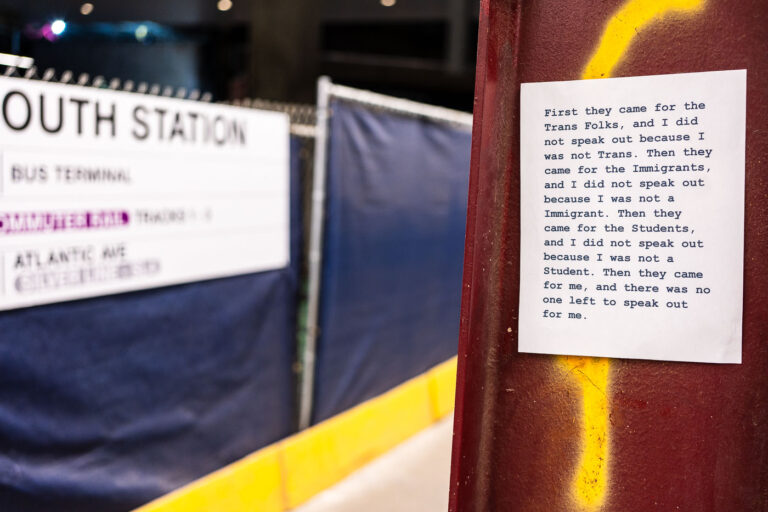 OUTH STATION
BUS TERMINAL
OMMUTER RAIL TRACKS
ATLANTIC AVE
SILVER LINE
First they came for the
Trans Folks, and I did
not speak out because I
was not Trans. Then they
came for the Immigrants,
and I did not speak out
because I was not a
Immigrant. Then they
came for the Students,
and I did not speak out
because I was not a
Student. Then they came
for me, and there was no
one left to speak out
for me.